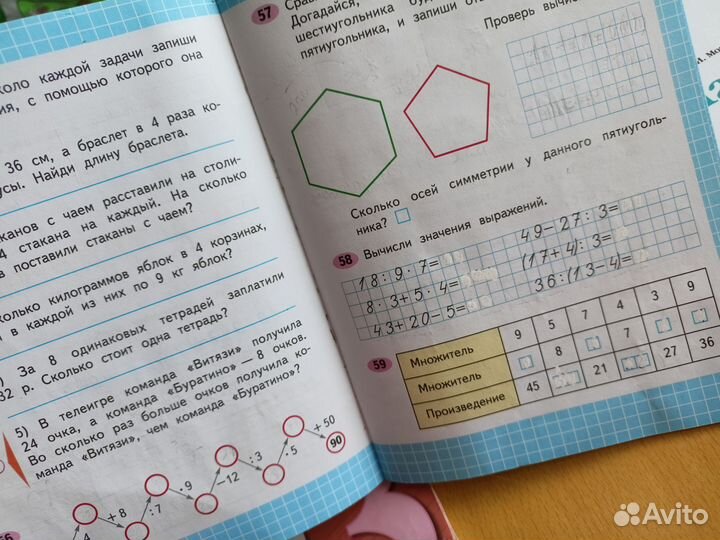 коло каждой задачи запиши
ия, с помощью которого она
36 см, а браслет в 4 раза ко-
усы. Найди длину браслета.
каков с чаем расставили на столи-
4 стакана на каждый. На сколько
в поставили стаканы с чаем?
колько килограммов яблок в 4 корзинах,
и в каждой из них по 9 кг яблок?
) За 8 одинаковых тетрадей заплатили
32 р. Сколько стоит одна тетрадь?
5) В телеигре команда «Витязи» получила
24 очка, а команда «Буратино» — 8 очков.
Во сколько раз больше очков получила ко-
манда «Витязи», чем команда «Буратино»?
4 +8 :7 ·9 −12 :3 ·5 +50 90
57
Догадайся,
шестиугольника
пятиугольника, и запиши
Проверь
Сколько осей симметрии у данного пятиуголь-
ника?
58 Вычисли значения выражений.
18 : 9 · 7 = 49 − 27 : 3 =
8 · 3 + 5 · 4 = (17 + 4) : 3 =
43 + 20 − 5 = 36 : (13 − 4) =
59
Множитель 9 5 7 4 3 9
Множитель 8 7
Произведение 45 21 27 36
Avito